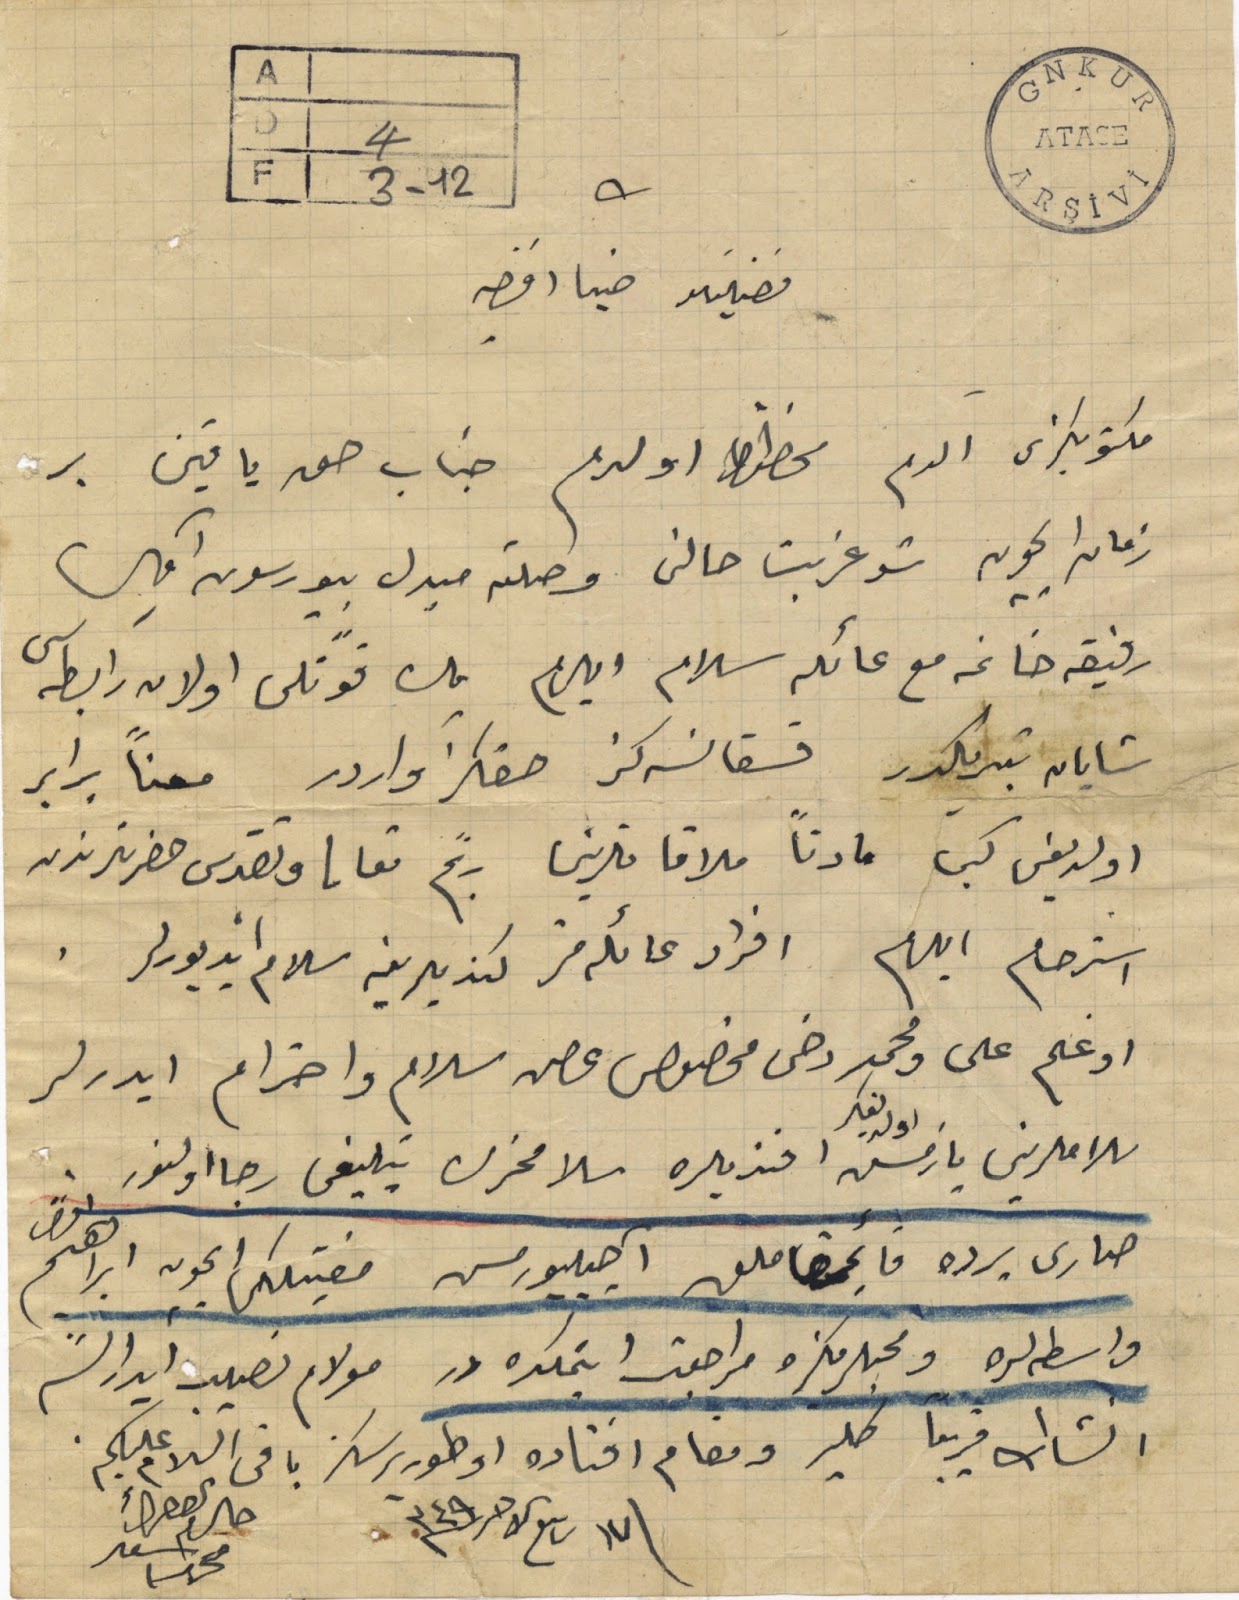 A
D 4
F 3-12
GNKUR ATASE ARŞİVİ
فضيلتلو ضيا افندی يه
مكتوبكزی آلدم محظوظ اولدم جناب حق ياقين بر
زمان ايچون شو غربت حالنی وصلته مبدل بيورسون آمين
رفيقه خانمه مع عائله سلام ايلرم پك قوّتلی اولان رابطه سی
شايان تبريكدر قسقانسه كز حقكز واردر معناً برابر
اولديغی كبی مادتاً ملاقاتلرينی ربّم تعالی وتقدس حضرتلرندن
استرحام ايلرم افراد عائله مز كنديلرينه سلام ايديورلر .
اوغلم علی ومحمد دخی مخصوص عرض سلام واحترام ايدرلر
سلاملرينی يازمش اولديغكز افنديلره سلاممزك تبليغی رجا اولنور .
صاری يرده قائممقاملق آچيليورمش مفتيلكی ايچون ابراهيم افندی
واسطه لره ومحللرمزه مراجعت ايتمكده در مولام نصيب ايدر انشا
انشاء الله قريباً كلير ومقام افتاده اوطوررسكز باقی السّلام عليكم .
١٧ ربيع الآخر ٣٤٩
محمد اسعد